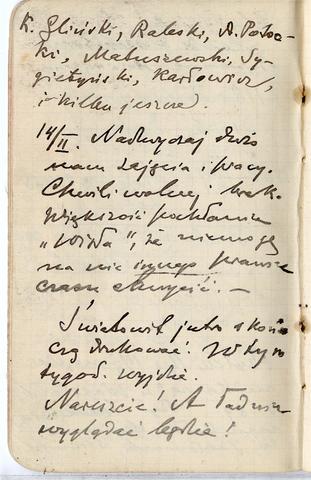 K. Gliński, Raleski, A. Potoc-
ki, Matuszewski, Sy-
gietyński, Karłowicz,
i kilku jeszcze.
14/II. Nadzwyczaj dużo
mam zajęcia i pracy.
Chwili wolnej brak.
Większość pochłania
„Wisła”, że nie mogę
na nic innego prawie
czasu chwycić. –
Światowit jutro skoń-
czą drukować. W tym
tygod. wyjdzie.
Nareszcie! A ładnie
wyglądać będzie!